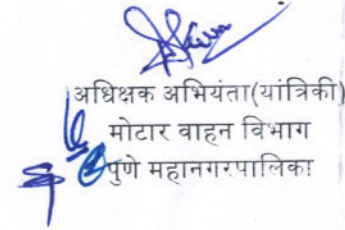 अधिक्षक अभियंता(यांत्रिकी)
मोटार वाहन विभाग
पुणे महानगरपालिका